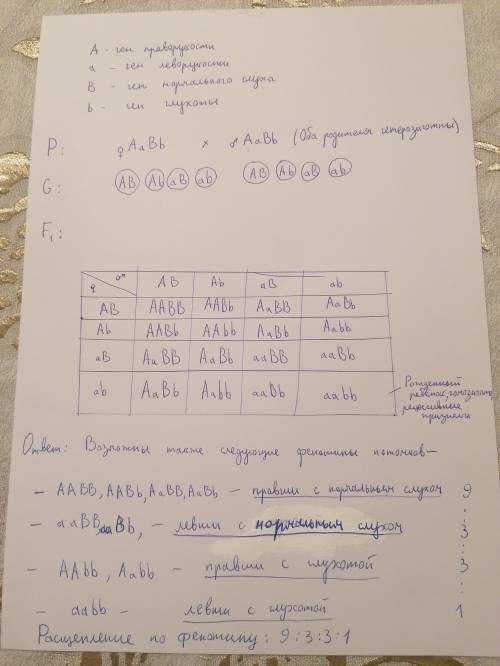 A - ген праворукости
a - ген леворукости
B - ген нормального слуха
b - ген глухоты
P: ♀ AaBb × ♂ AaBb (Оба родителя гетерозиготны)
G: AB Ab aB ab AB Ab aB ab
F1:
♀ ♂ AB Ab aB ab
AB AABB AABb AaBB AaBb
Ab AABb AAbb AaBb Aabb
aB AaBB AaBb aaBB aaBb
ab AaBb Aabb aaBb aabb
Рожденный
ребенок, гомозигота,
рецессивные
признаки
Ответ: Возможны также следующие фенотипы потомков—
- AABB, AABb, AaBB, AaBb - правши с нормальным слухом 9
:
- aaBB, aaBb, - левши с нормальным слухом 3
:
- AAbb, Aabb - правши с глухотой 3
:
- aabb - левши с глухотой 1
Расщепление по фенотипу: 9:3:3:1